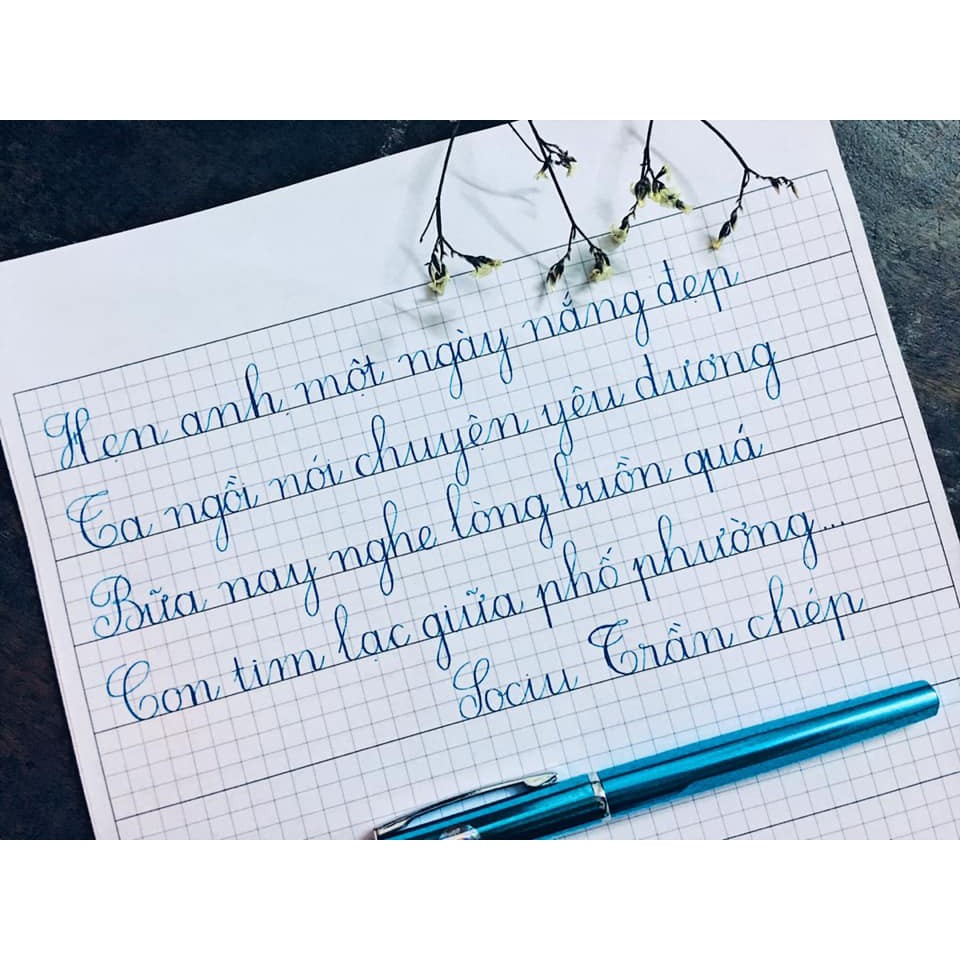 Hẹn anh một ngày nắng đẹp
Ta ngồi nói chuyện yêu đương
Bữa nay nghe lòng buồn quá
Con tim lạc giữa phố phường...
Sociu Trần chép